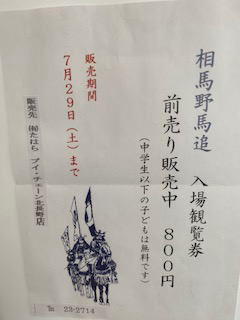 相馬野馬追 入場観覧券
前売り販売中 800円
(中学生以下の子どもは無料です)
販売期間
7月29日(土)まで
販売先 ㈲たはら ブイ・チェーン北長野店
℡ 23-2714